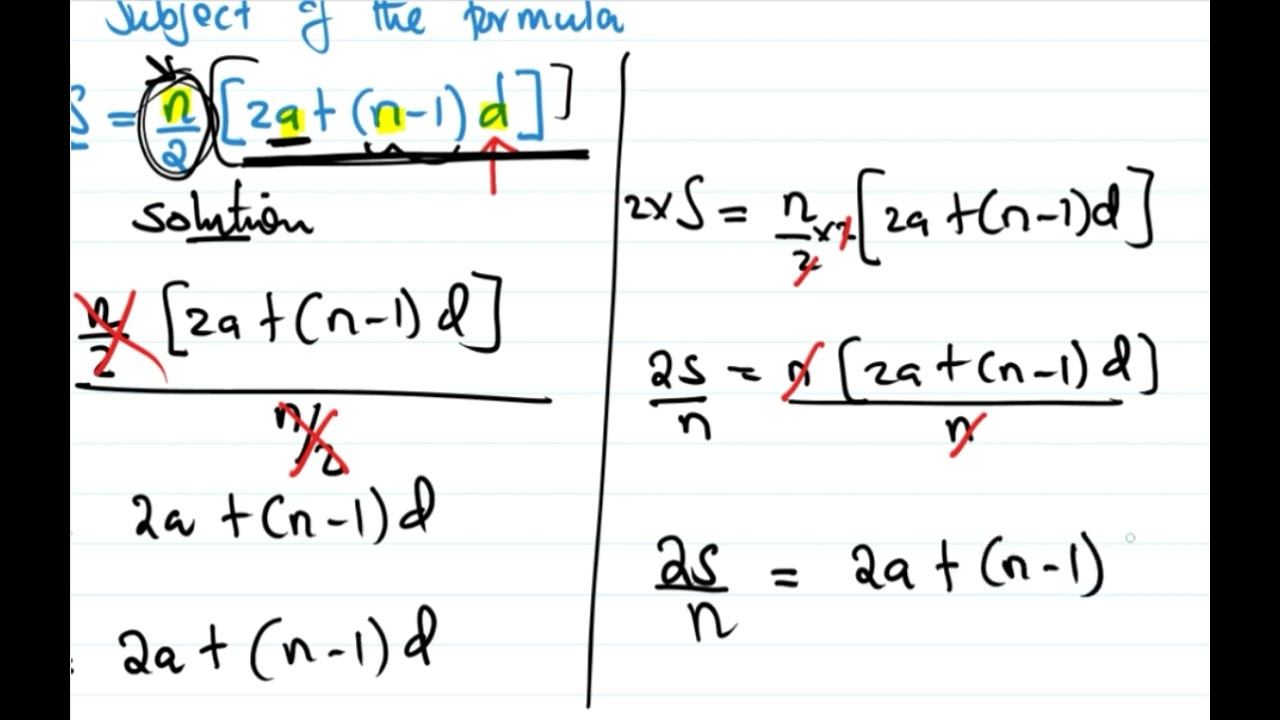 subject of the formula
S = n/2 [2a + (n-1) d]
Solution
n/2 [2a + (n-1) d]
n/2
2a + (n-1) d
2a + (n-1) d
2×S = n/2 ×2 [2a + (n-1)d]
2s/n = n [2a + (n-1) d] / n
2s/n = 2a + (n-1)